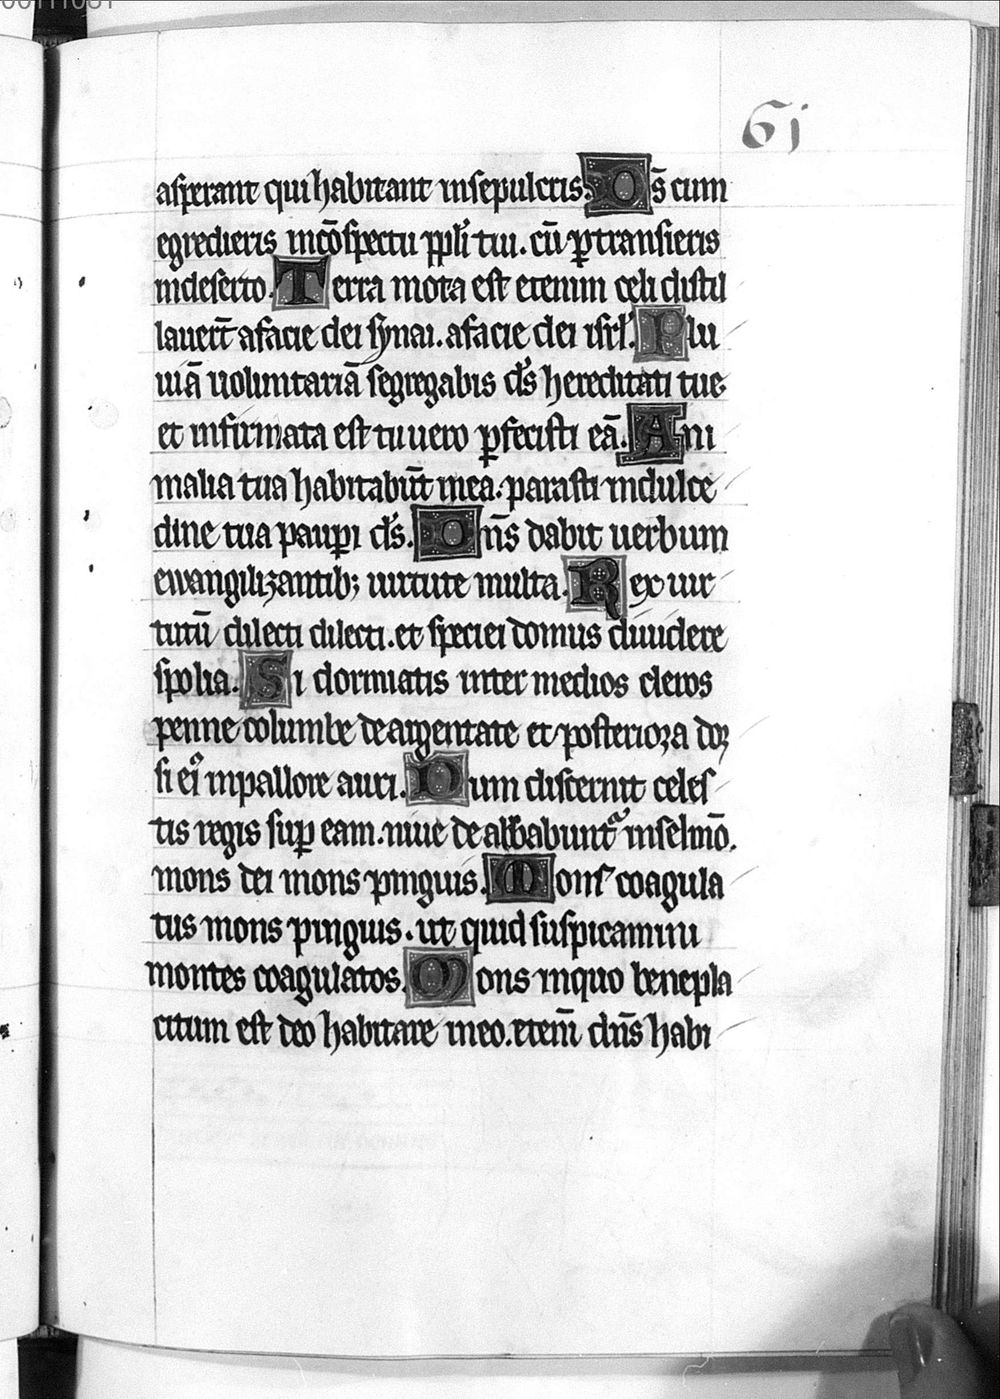 61
asperant qui habitant insepulcris. Ds̄ cum
egredieris incōspectu ppl̄i tui. cū ꝑtransieris
indeserto. Terra mota est etenim celi distil
lauerт̄ afacie dei synai. afacie dei isrl̄. Plu
uiā uoluntariā segregabis ds̄ hereditati tue
et infirmata est tu uero ꝑfecisti eā. Ani
malia tua habitabūt inea. parasti indulce
dine tua pauꝑi ds̄. Dn̄s dabit uerbum
ewangilizantib; uirtute multa. Rex uir
tutū dilecti dilecti. et speciei domus diuidere
spolia. Si dormiatis inter medios cleros
penne columbe deargentate et posteriora dor
si eiꝰ inpallore auri. Dum discernit celes
tis regis suꝑ eam. niue dealbabunt᷑ inselmō.
mons dei mons pinguis. Mons coagula
tus mons pinguis. ut quid suspicamini
montes coagulatos. Mons inquo benepla
citum est deo habitare ineo. etenī dn̄s habi